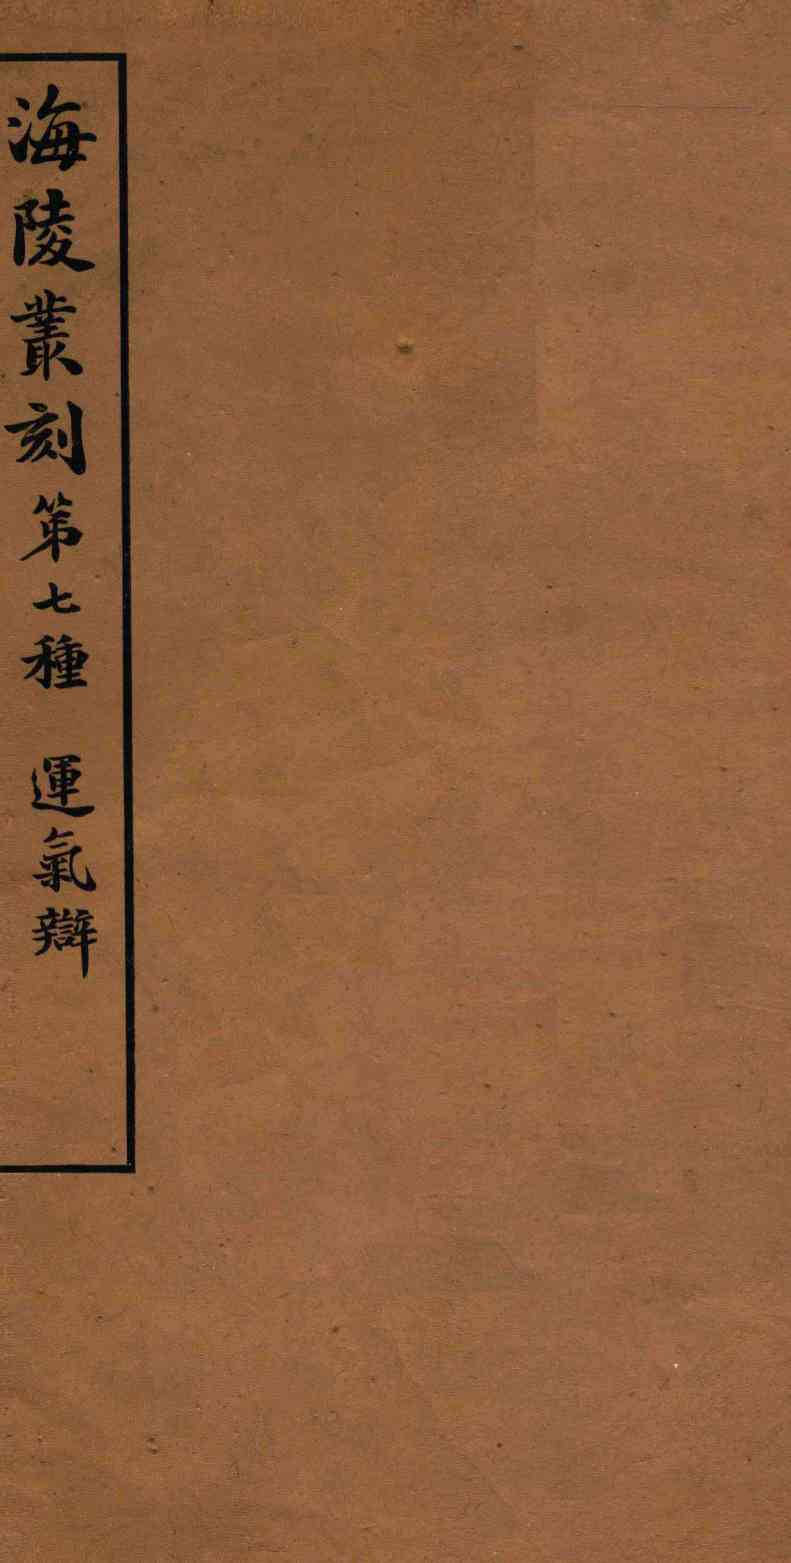 海陵叢刻第七種　運氣辯